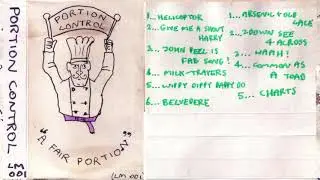 PORTION CONTROL
LM
001
PORTION
CONTROL
"A FAIR PORTION"
(LM 001
1... HELICOPTOR
2... GIVE ME A SHOUT
HARRY
3... JOHN PEEL IS
FAB SONG!
4... MILK-TRAYERS
5... WIPPY DIPPY DAPPY DO
6... BELVEDERE
1... ARSENIC & OLD
LACE
2... 2 DOWN SEE
4 ACROSS
3... WAAH!
4... COMMON AS
A TOAD
5... CHARTS